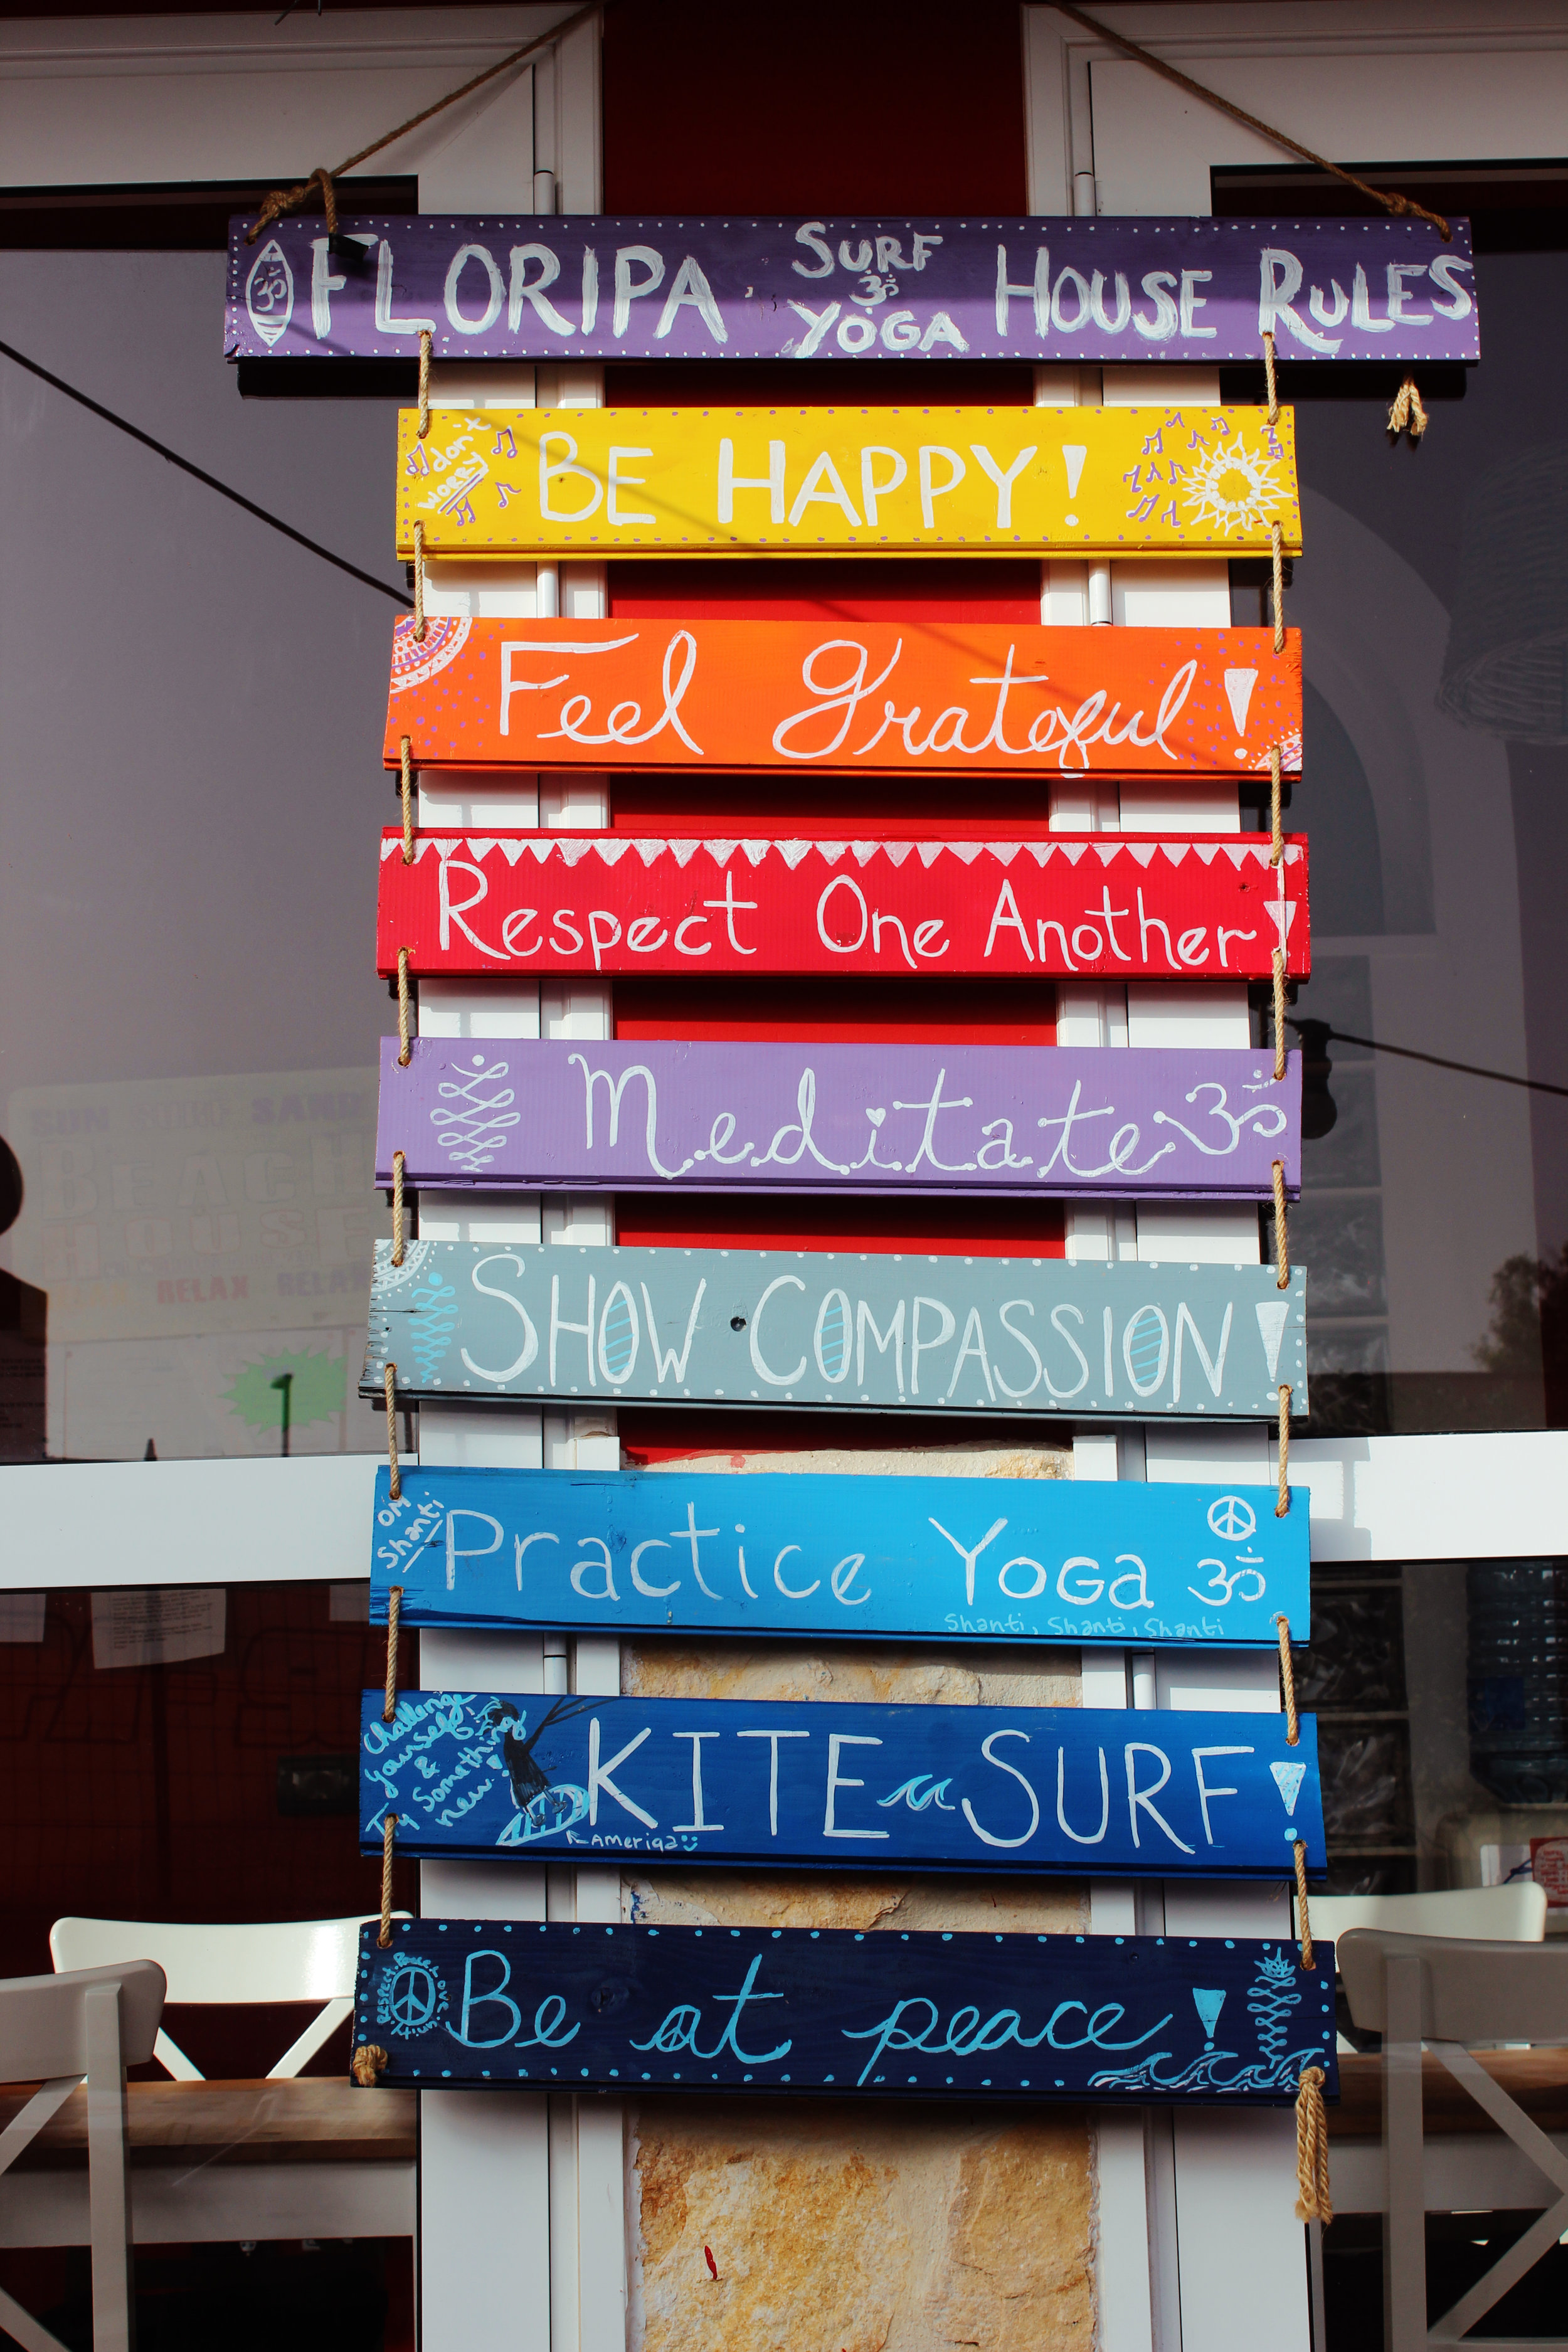 ॐ FLORIPA SURF ॐ YOGA HOUSE RULES
don't worry BE HAPPY!
Feel grateful!
Respect One Another!
Meditate ॐ
SHOW COMPASSION!
OM Shanti Practice Yoga ॐ
Shanti, Shanti, Shanti
Challenge yourself & Try Something new! KITE SURF!
Ameriqa
Respect Peace Love Unity Be at peace!
SUN SAND
BEACH
HOUSE
RELAX RELAX